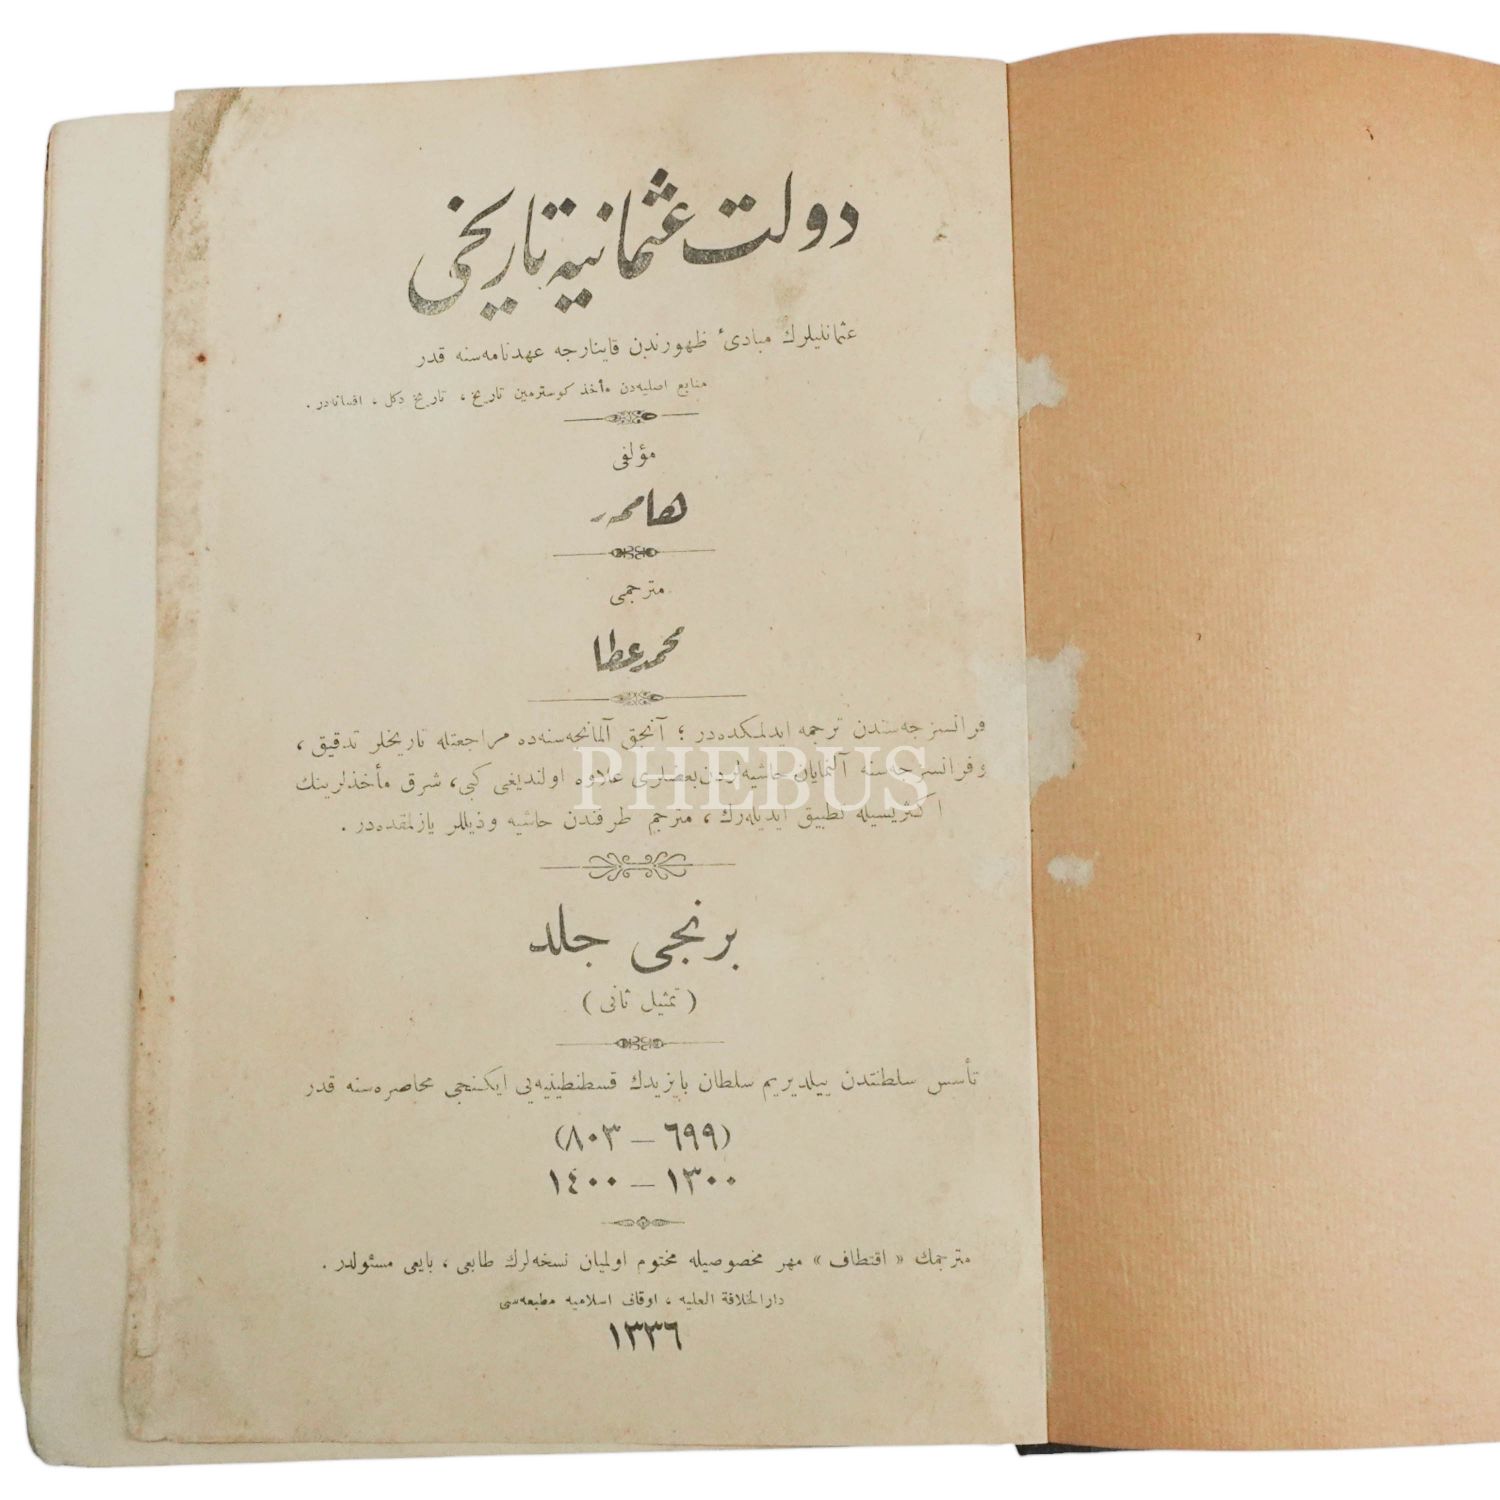 دولت عثمانیه تاریخی
عثمانلیلرك مبادئ ظهورندن قاینارجه عهدنامه‌سنه قدر
منابع اصلیه‌دن مأخذ كوسترمین تاریخ ، تاریخ دكل ، افسانه‌در .
مؤلفی
هاممه‌ر
مترجمی
محمد عطا
فرانسزجه‌سندن ترجمه ایدلمكده‌در ؛ آنجق آلمانجه‌سنه‌ده مراجعتله تاریخلر تدقیق ،
وفرانسزجه‌سنه آلنمایان حاشیه‌لردن بعضلری علاوه اولندیغی كبی ، شرق مأخذلرینك
اكثریسیله تطبیق ایدیله‌رك ، مترجم طرفندن حاشیه وذیللر یازلمقده‌در .
PHEBUS
برنجی جلد
( تمثیل ثانی )
تأسس سلطنتدن ییلدیریم سلطان بایزیدك قسطنطینیه‌یی ایكنجی محاصره‌سنه قدر
(٦٩٩ — ٨٠٣)
١٣٠٠ — ١٤٠٠
مترجمك « اقتطاف » مهر مخصوصیله مختوم اولمیان نسخه‌لرك طابعی ، بایعی مسئولدر .
دارالخلافة العلیه ، اوقاف اسلامیه مطبعه‌سی
١٣٣٦